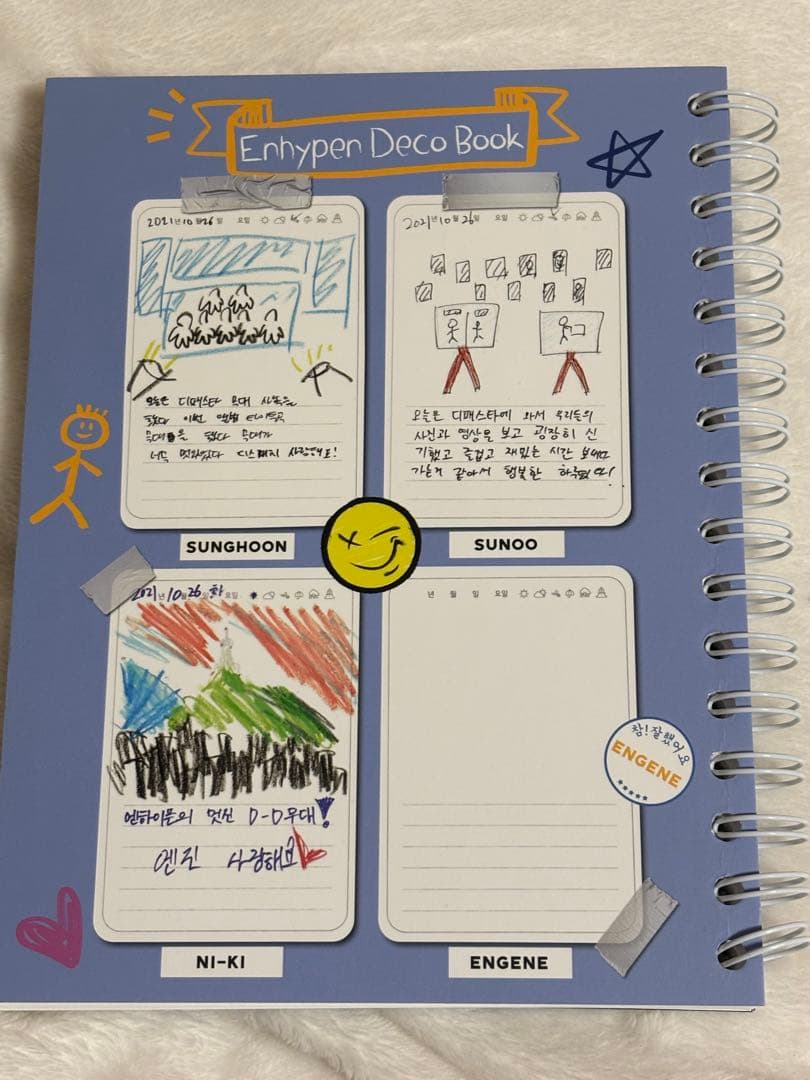 Enhypen Deco Book
2021년 10월 26일 요일
2021년 10월 26일 요일
오늘은 디패스타 무대 사녹을
했다 이번 앨범 타이틀곡
무대를 했다 무대가
너무 멋있었다 사랑해요!
오늘은 디패스타에 와서 우리들의
사진과 영상을 보고 굉장히 신
기했고 즐겁고 재밌는 시간 보내다
가는거 같아서 행복한
SUNGHOON
SUNOO
2021년 10월 26일 화요일
년 월 일 요일
엔하이픈의 멋진 D-D무대!
엔진 사랑해요
참! 잘했어요
ENGENE
NI-KI
ENGENE